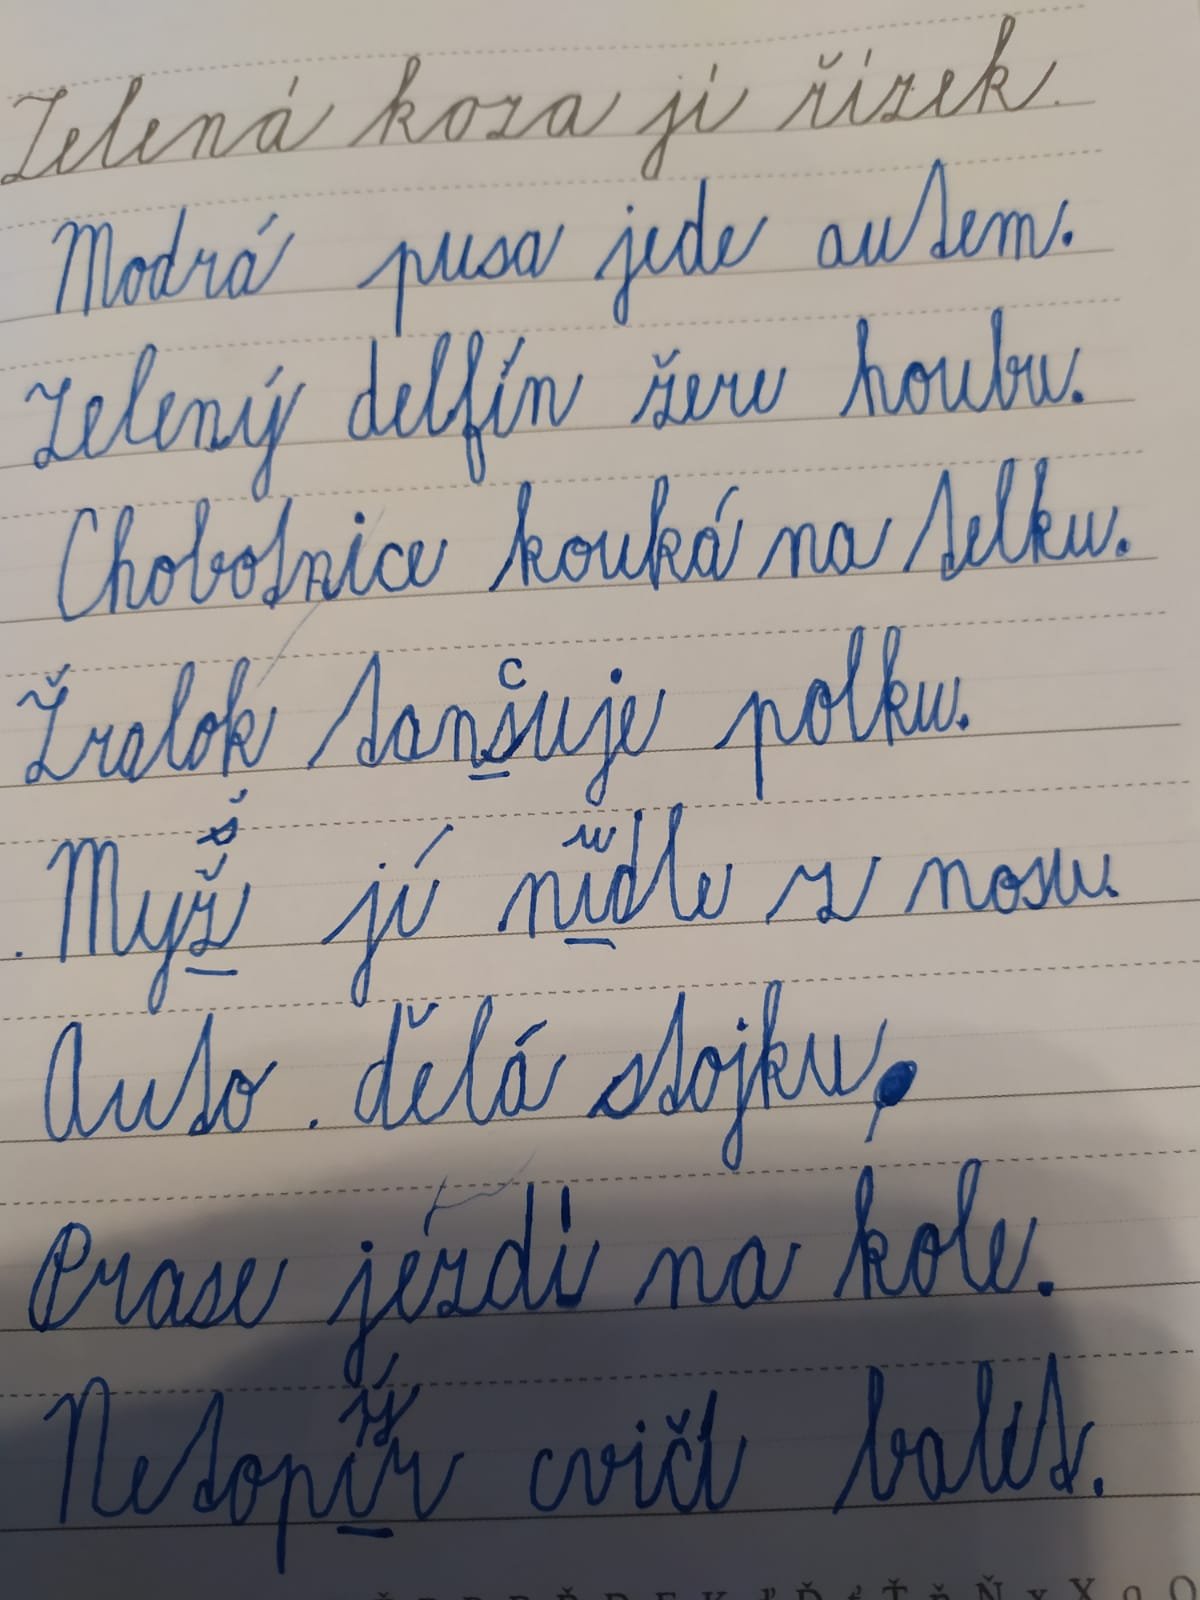 Zelená koza jí řízek.
Modrá pusa jede autem.
Zelený delfín žere houbu.
Chobotnice kouká na telku.
Žralok tansuje polku.
c
š
Myž jí nidle z nosu.
u
Auto. dělá stojku.
Prase jézdí na kole.
ý
Netopír cvičí balet.